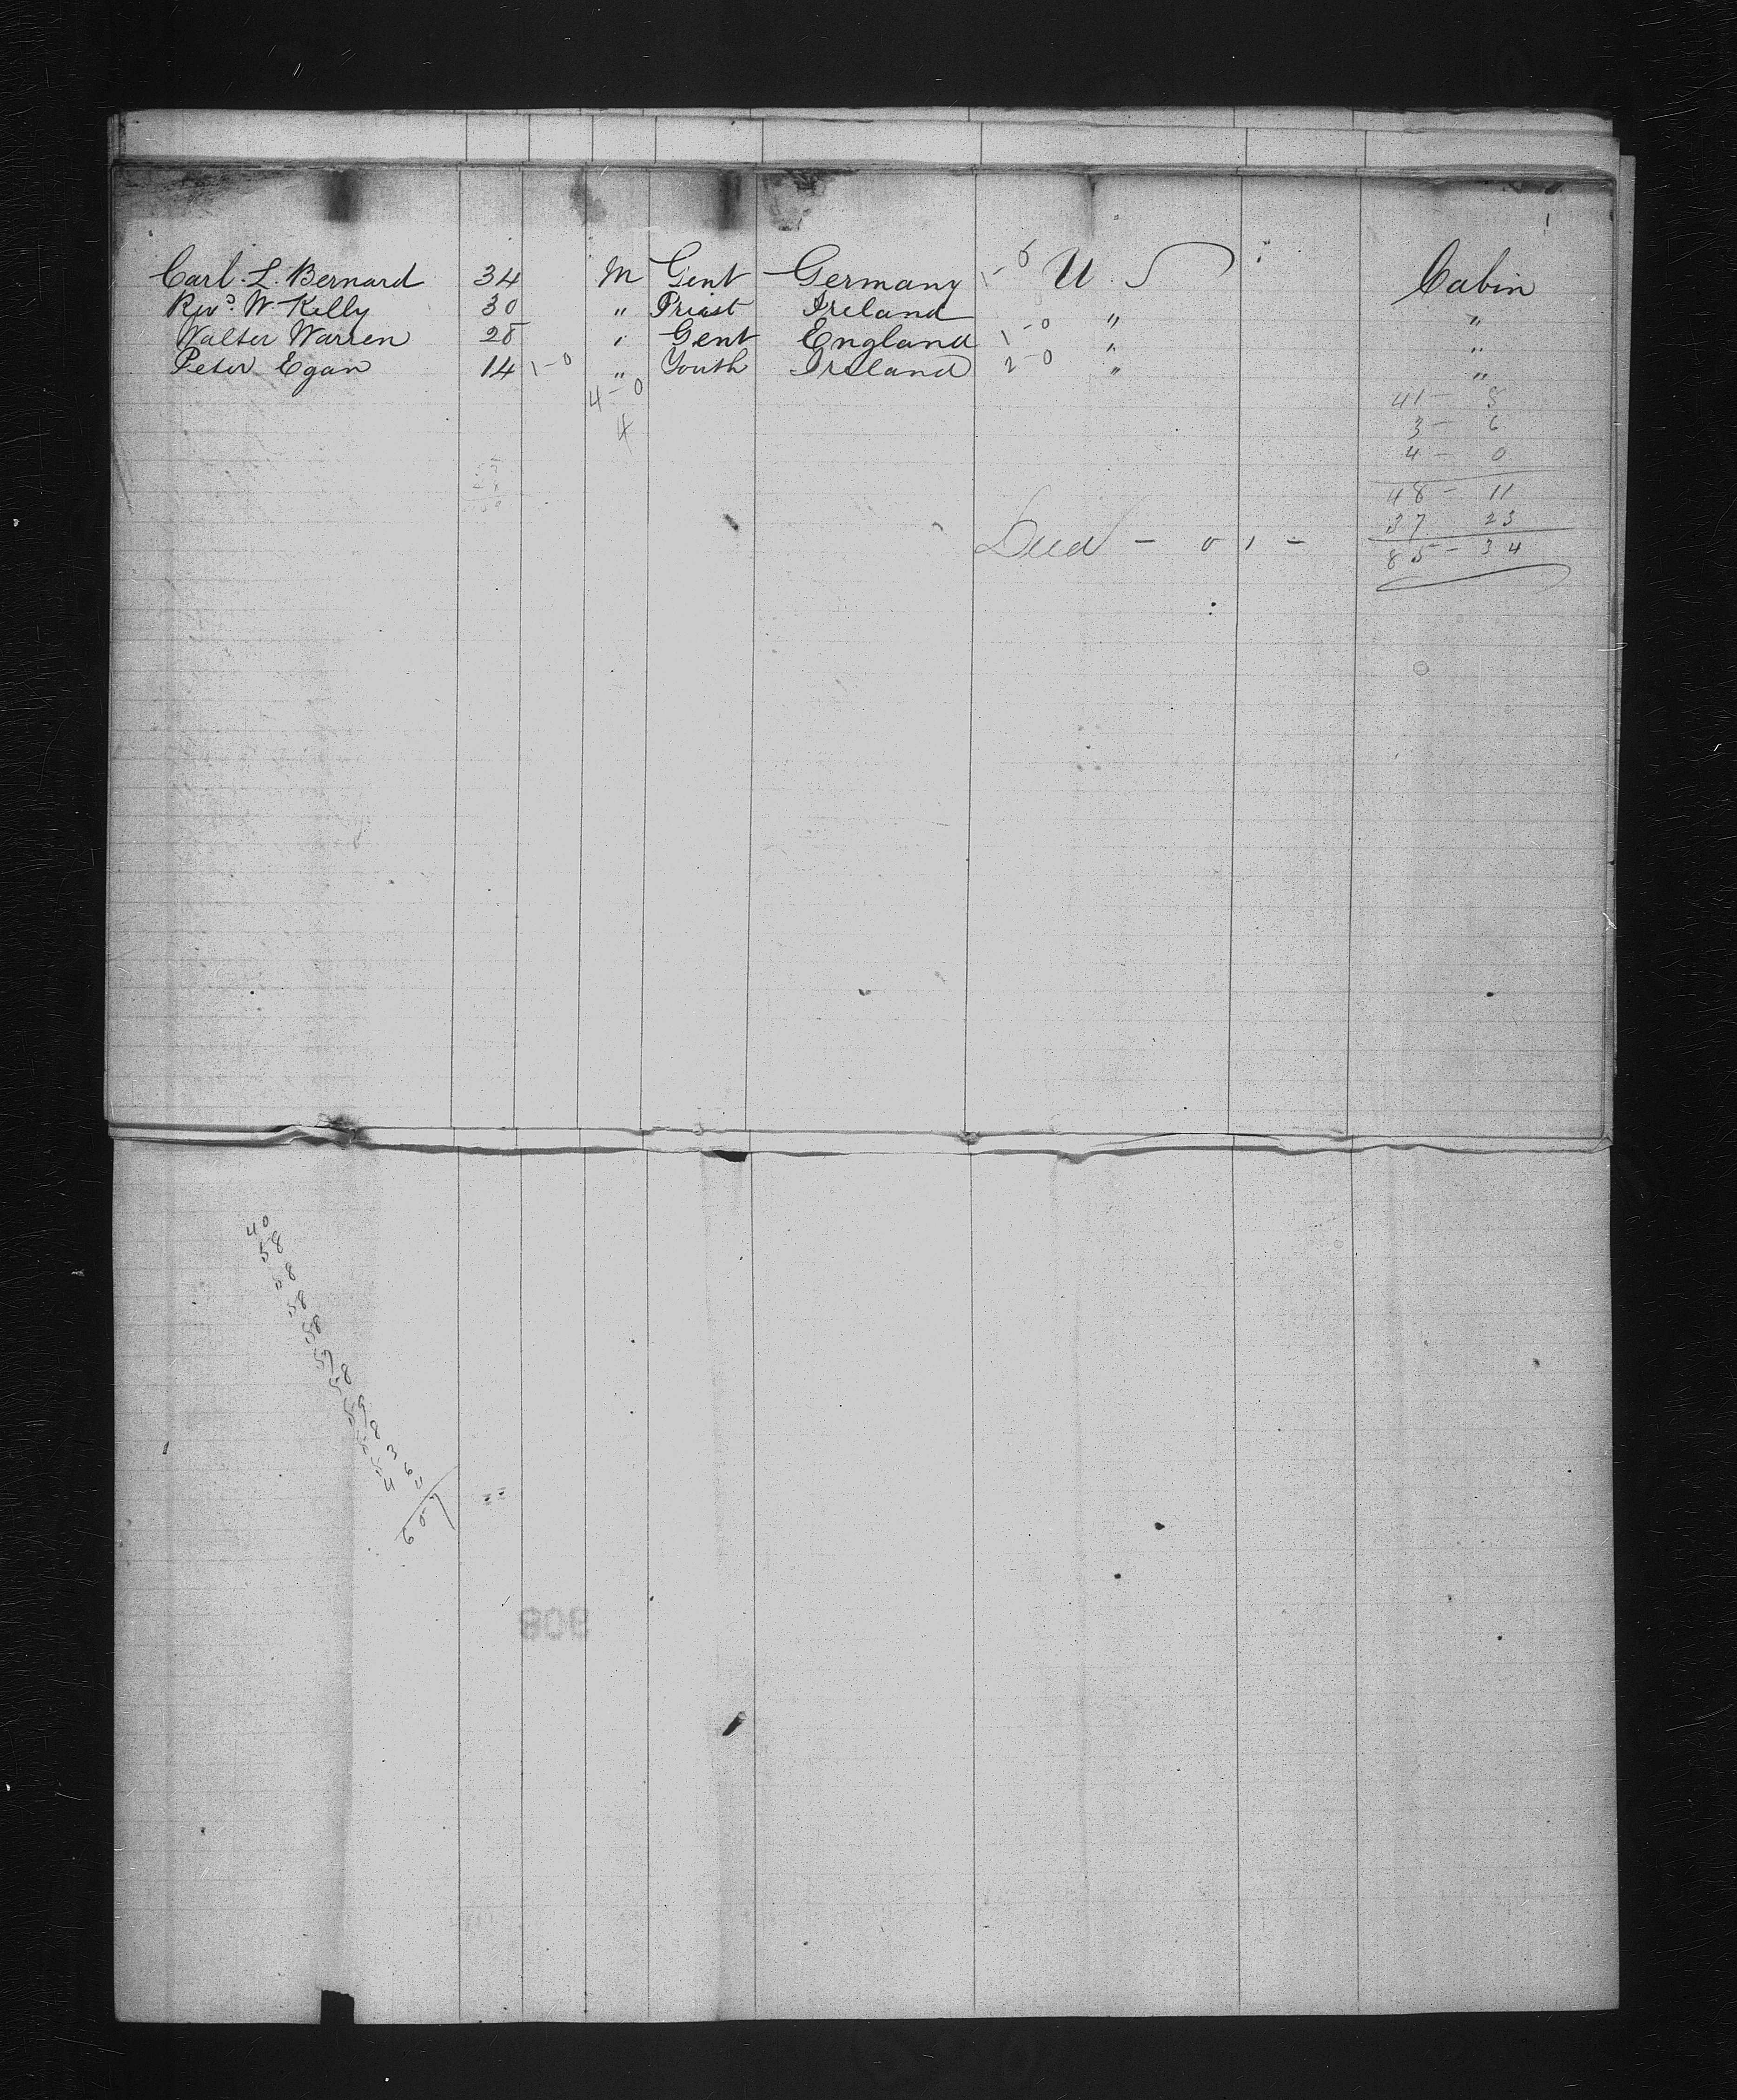 Carl. L. Bernard 34 M Gent Germany 1-0 U. S Cabin
Revd. W. Kelly 30 " Priest Ireland " "
Walter Warren 28 " Gent England 1-0 " "
Peter Egan 14 1-0 " Youth Ireland 2-0 " "
4-0
4
41- 8
3- 6
4- 0
48- 11
37 23
85- 34
Died - 0 1 -
40
58